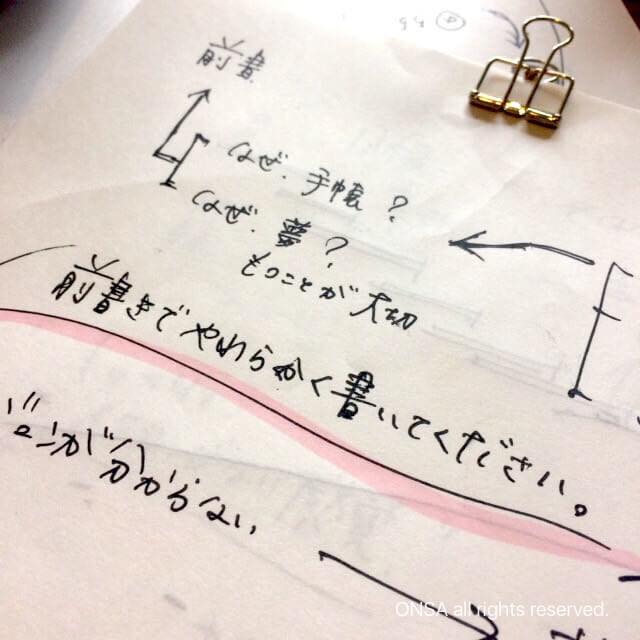 前書
なぜ、手帳?
なぜ、夢?
もつことが大切
前書きでやわらかく書いてください。
分からない
ONSA all rights reserved.